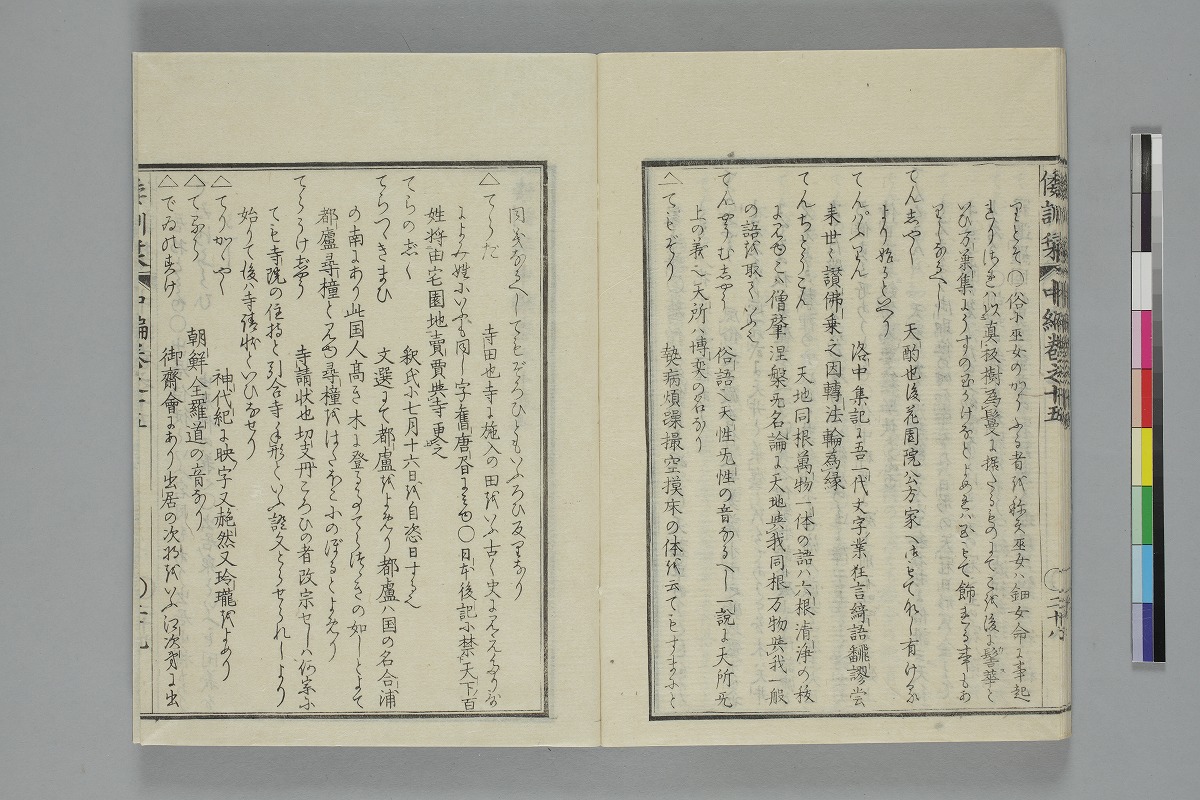 倭訓栞 中編巻之十五 二十八
りとそ○俗に巫女のかうふる者を称す巫女ハ鈿女命に事起
れりされハ以真坂樹為鬘に据たるものにてこは後に髻華と
いひ万葉集にうすの玉かけなとよめれハ玉もて飾れる事もあ
りしなるへし
てんしやく 天酌也後花園院公方家へはしめて有ける
より始ると
てんほふりん 洛中集記に吾一代文字業狂言綺語飜謬当
来世々讃佛乗之因轉法輪為縁
てんちとうこん 天地同根萬物一体の語ハ六根清浄の秡
に見ゆこハ僧肇涅槃无名論に天地與我同根万物與我一般
の語を取る
てんせうむしやう 俗語也天性无性の音なるへし一説に天所无
上の義也天所ハ博奕の名なり
△てもそり 熱病煩躁撮空摸床の体を云てもすまにと
同しなるへしてもそろひともいふろひ反りなり
△てらた 寺田也寺に施入の田をいふ古く史に見えたり
よみ姓にいふも同し字舊唐書に見ゆ○日本後記に禁天下百
姓将田宅園地賣買與寺更
てらのしく 釈氏に七月十六日を自恣日とす
てらつつきまひ 文選にて都盧をよめり都盧ハ国の名合浦
の南にあり此国人髙き木に登るものてらつつきの如しとよて
都盧尋橦と見ゆ尋橦をはたほこにのぼるとよめり
てらうけしやう 寺請状也切支丹ころひの者改宗せしハ何宗に
ても寺院の住持を引合寺手形といふ證文とらせられしより
始りて後ハ寺請状といひなせり
△てりかゝやく 神代紀に映字又赩然又玲瓏をよめり
△てるら 朝鮮全羅道の音なり
△でゐのすけ 御齋會にあり出居の次将をいふ江次第に出
倭訓栞 中編巻之十五